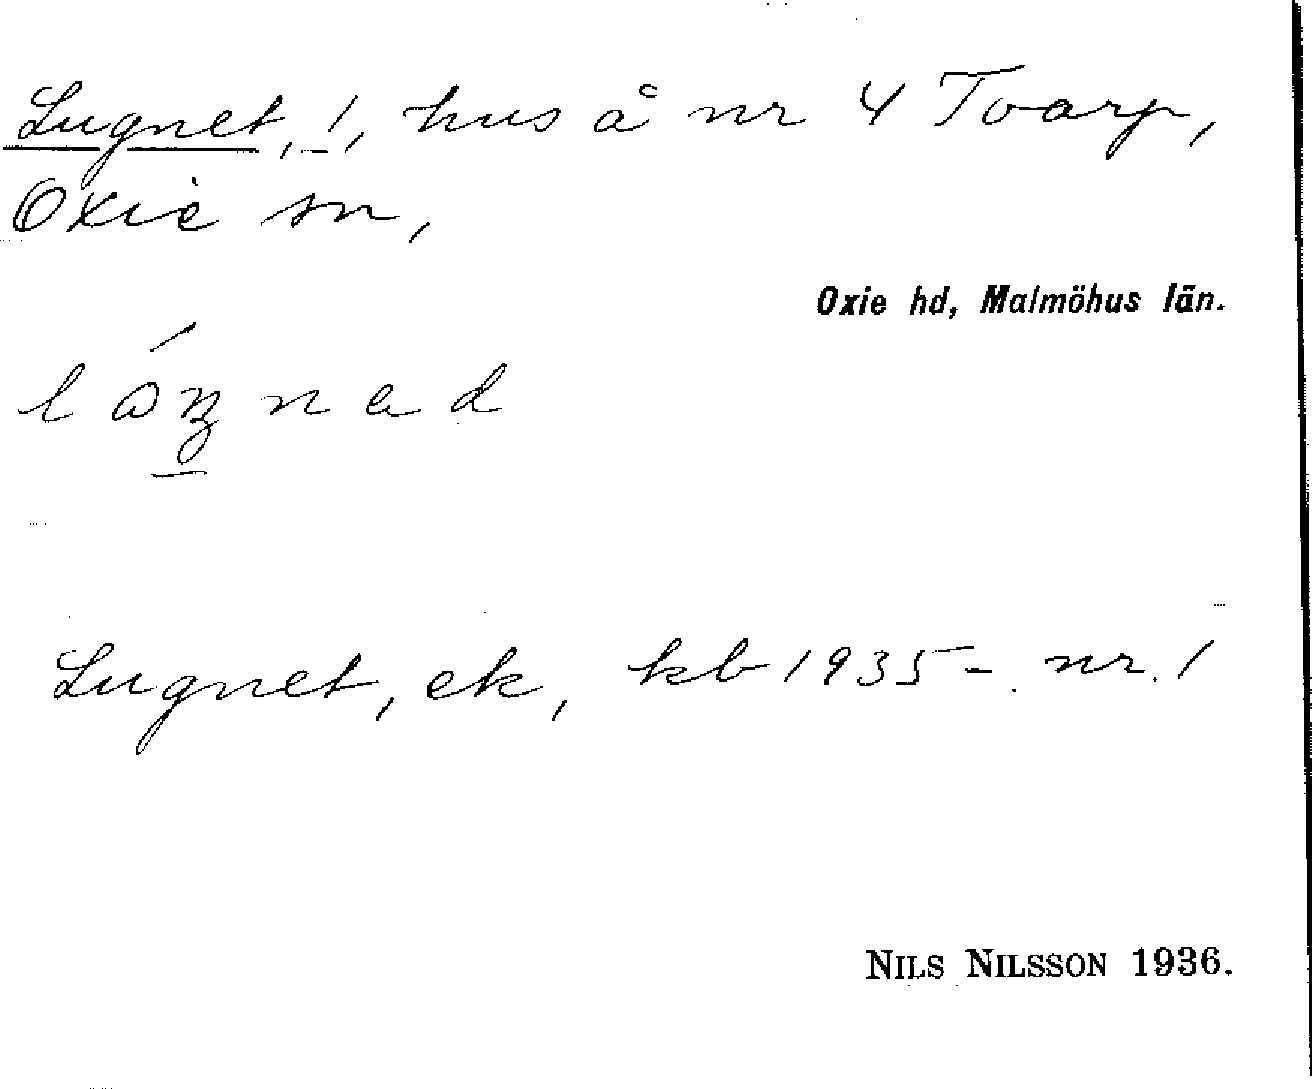 Lugnet, 1, hus å nr 4 Toarp,
Oxie sn,
Oxie hd, Malmöhus län.
Lugnet, ek, kb 1935- nr. 1
NILS NILSSON 1936.